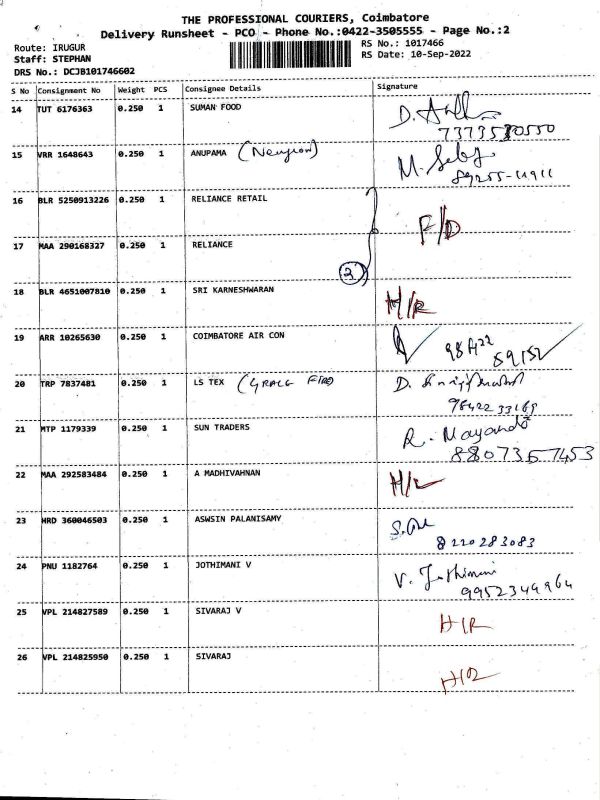 THE PROFESSIONAL COURIERS, Coimbatore
Delivery Runsheet - PCO - Phone No.:0422-3505555 - Page No.:2
Route: IRUGUR
Staff: STEPHAN
DRS No.: DCJB101746602
RS No.: 1017466
RS Date: 10-Sep-2022
S No Consignment No Weight PCS Consignee Details Signature
14 TUT 6176363 0.250 1 SUMAN FOOD
15 VRR 1648643 0.250 1 ANUPAMA M. 89255-11911
16 BLR 5250913226 0.250 1 RELIANCE RETAIL F/D
17 MAA 290168327 0.250 1 RELIANCE
18 BLR 4651007810 0.250 1 SRI KARNESHWARAN H/R
19 ARR 10265630 0.250 1 COIMBATORE AIR CON
20 TRP 7837481 0.250 1 LS TEX D. 9842233169
21 MTP 1179339 0.250 1 SUN TRADERS R. 8807357453
22 MAA 292583484 0.250 1 A MADHIVAHNAN H/L
23 HRD 360046503 0.250 1 ASWSIN PALANISAMY 8220283083
24 PNU 1182764 0.250 1 JOTHIMANI V V. Jothimani 9952344964
25 VPL 214827589 0.250 1 SIVARAJ V H/R
26 VPL 214825950 0.250 1 SIVARAJ H/R